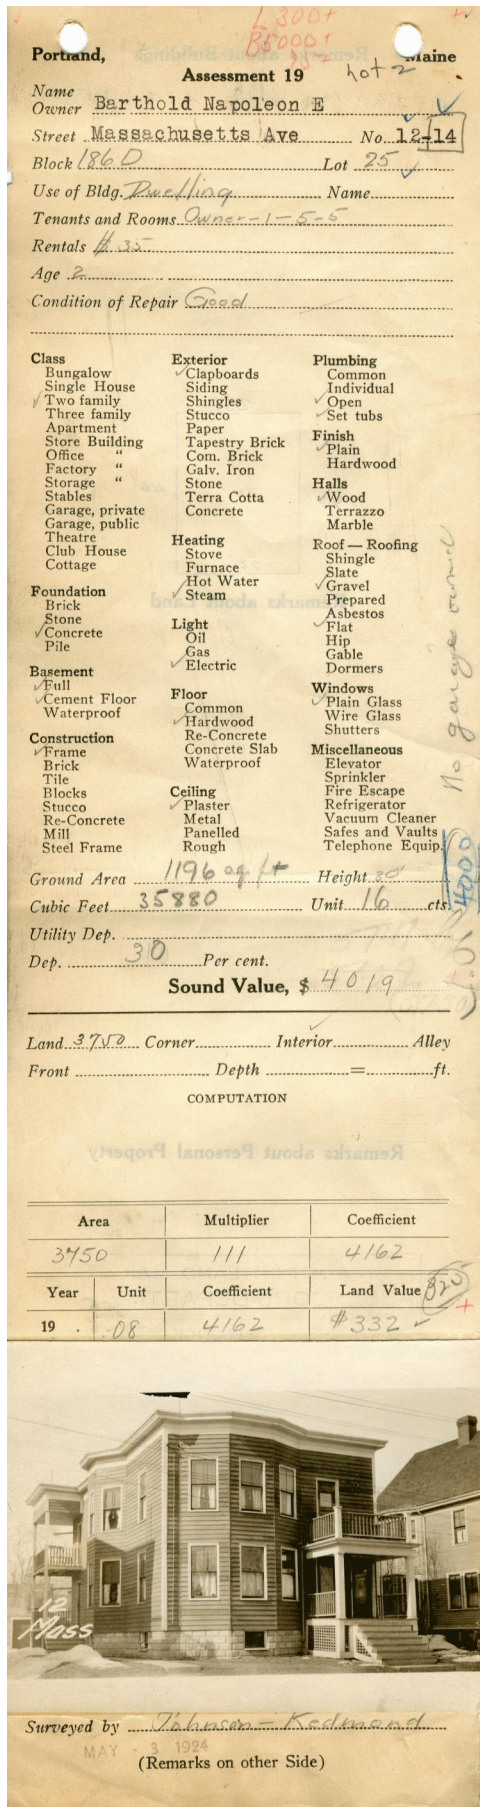 L 300+
B 5000+
Portland, Maine
Assessment 19 Lot 2
Name
Owner Barthold Napoleon E
Street Massachusetts Ave No. 12-14
Block 186 D Lot 25
Use of Bldg. Dwelling Name
Tenants and Rooms Owner-1-5-5
Rentals $ 35
Age 2
Condition of Repair Good
Class
Bungalow
Single House
✓ Two family
Three family
Apartment
Store Building
Office "
Factory "
Storage "
Stables
Garage, private
Garage, public
Theatre
Club House
Cottage
Foundation
Brick
Stone
✓ Concrete
Pile
Basement
✓ Full
✓ Cement Floor
Waterproof
Construction
✓ Frame
Brick
Tile
Blocks
Stucco
Re-Concrete
Mill
Steel Frame
Exterior
✓ Clapboards
Siding
Shingles
Stucco
Paper
Tapestry Brick
Com. Brick
Galv. Iron
Stone
Terra Cotta
Concrete
Heating
Stove
Furnace
Hot Water
✓ Steam
Light
Oil
Gas
✓ Electric
Floor
Common
✓ Hardwood
Re-Concrete
Concrete Slab
Waterproof
Ceiling
✓ Plaster
Metal
Panelled
Rough
Plumbing
Common
Individual
✓ Open
✓ Set tubs
Finish
✓ Plain
Hardwood
Halls
✓ Wood
Terrazzo
Marble
Roof — Roofing
Shingle
Slate
✓ Gravel
Prepared
Asbestos
✓ Flat
Hip
Gable
Dormers
Windows
✓ Plain Glass
Wire Glass
Shutters
Miscellaneous
Elevator
Sprinkler
Fire Escape
Refrigerator
Vacuum Cleaner
Safes and Vaults
Telephone Equip.
No garage owned
4000
Ground Area 1196 sq. ft Height 30
Cubic Feet 35880 Unit 16 cts.
Utility Dep.
Dep. 30 Per cent.
Sound Value, $ 4019
Land 3750 Corner Interior ✓ Alley
Front Depth = ft.
COMPUTATION
Area Multiplier Coefficient
3750 111 4162
Year Unit Coefficient Land Value 320
19 . .08 4162 $ 332 ✓
12
Mass
Surveyed by Johnson - Redmond
MAY - 3 1924
(Remarks on other Side)